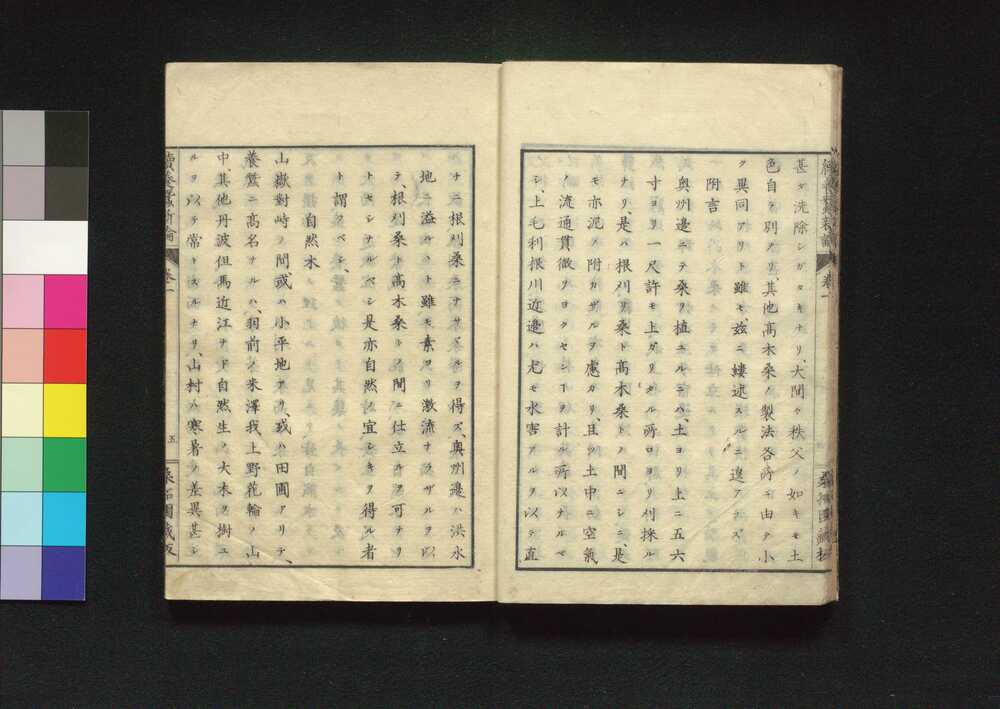 甚ダ洗除シガタキナリ、大間々秩父ノ如キモ土
色自ラ別アリ、其他髙木桑ノ製法各所ニ由テ小
ク異同アリト雖モ、茲ニ縷述スルニ遑アラズ
附言
奥州邊ニテ桑ヲ植ユルニハ、土ヨリ上ニ五六
寸ヨリ一尺許モ上ガリタル所ヨリ刈採ル
ナリ、是ハ根刈リ桑ト髙木桑トノ間ニシテ、是
モ亦泥ノ附カザルヲ慮カリ、且ツ土中ニ空氣
ノ流通貫徹ヲヨクセシコヲ計ル所以ナルベ
シ、上毛利根川近邉ハ尤モ水害アルヲ以テ直
續養蠶新論
卷一
ルナニ根刈桑ニナサヾルヲ得ズ、奥州邊ハ洪水
地ニ溢ルヽト雖モ素ヨリ激流ナラザルヲ以
テ、根刈桑ト髙木桑ノ間ニ仕立ルヲ可ナリ
トセシナルベシ是亦自然ノ宜シキヲ得ル者
ト謂フベシ、
自然木
山嶽對峙ノ間或ハ小平地アリ、或ハ田圃アリテ、
養蠶ニ髙名ナルハ、羽前ノ米澤我上野花輪ノ山
中、其他丹波但馬近江ナド自然生ノ大木ヲ樹ユ
ルヲ以テ常トスルナリ、山村ハ寒暑ノ差異甚シ
續養蠶新論
卷一
五